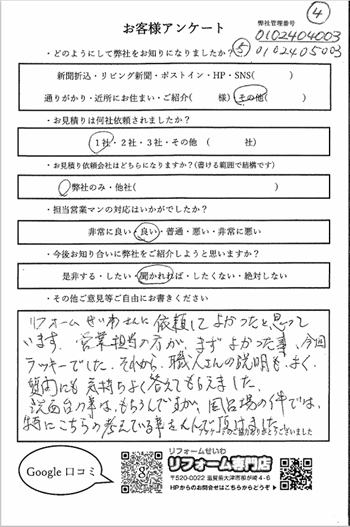 ④
お客様アンケート
弊社管理番号
0102404003
⑤ 0102405003
・どのようにして弊社をお知りになりましたか?
新聞折込・リビング新聞・ポストイン・HP・SNS( )
通りがかり・近所にお住まい・ご紹介( 様)その他( )
・お見積りは何社依頼されましたか?
1社・2社・3社・その他 ( 社)
・お見積り依頼会社はどちらになりますか?(書ける範囲で結構です)
弊社のみ・他社( )
・担当営業マンの対応はいかがでしたか?
非常に良い・良い・普通・悪い・非常に悪い
・今後お知り合いに弊社をご紹介しようと思いますか?
是非する・したい・聞かれれば・したくない・絶対しない
・その他ご意見等ご自由にお書きください
リフォームせいわさんに依頼してよかったと思って
います。営業担当の方が、まずよかった事、今回
ラッキーでした。それから、職人さんの説明も、よく、
質問にも気持ちよく答えてもらえました。
洗面台の事は、もちろんですが、風呂場の件では、
特にこちらの考えている事をくんで頂けました。
アンケートのご協力ありがとうございました
Google 口コミ
リフォームせいわ
リフォーム専門店
〒520-0022 滋賀県大津市柳が崎4-6
HPからのお問合せはこちらからどうぞ